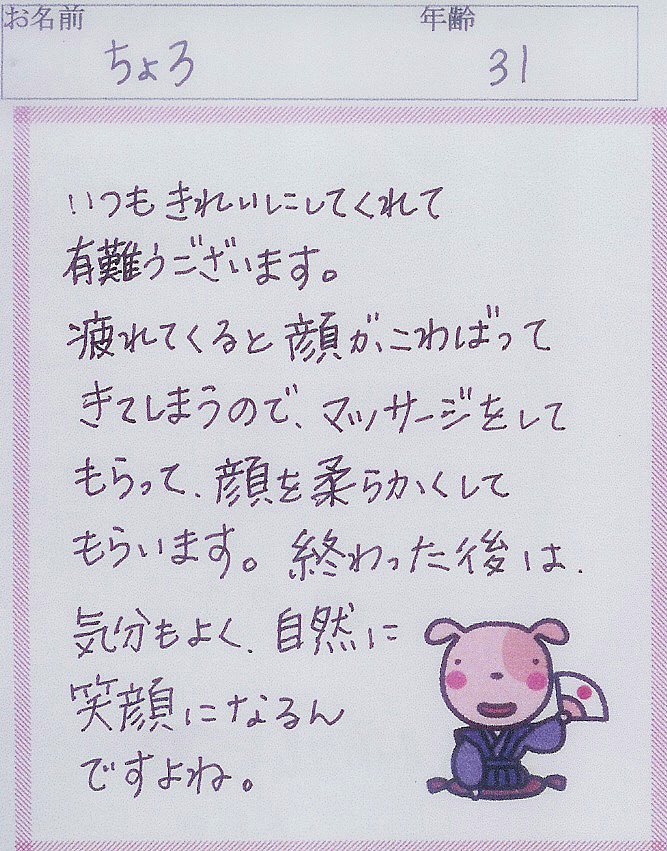 お名前 年齢
ちょろ 31
いつもきれいにしてくれて
有難うございます。
疲れてくると顔が、こわばって
きてしまうので、マッサージをして
もらって、顔を柔らかくして
もらいます。終わった後は、
気分もよく、自然に
笑顔になるん
ですよね。